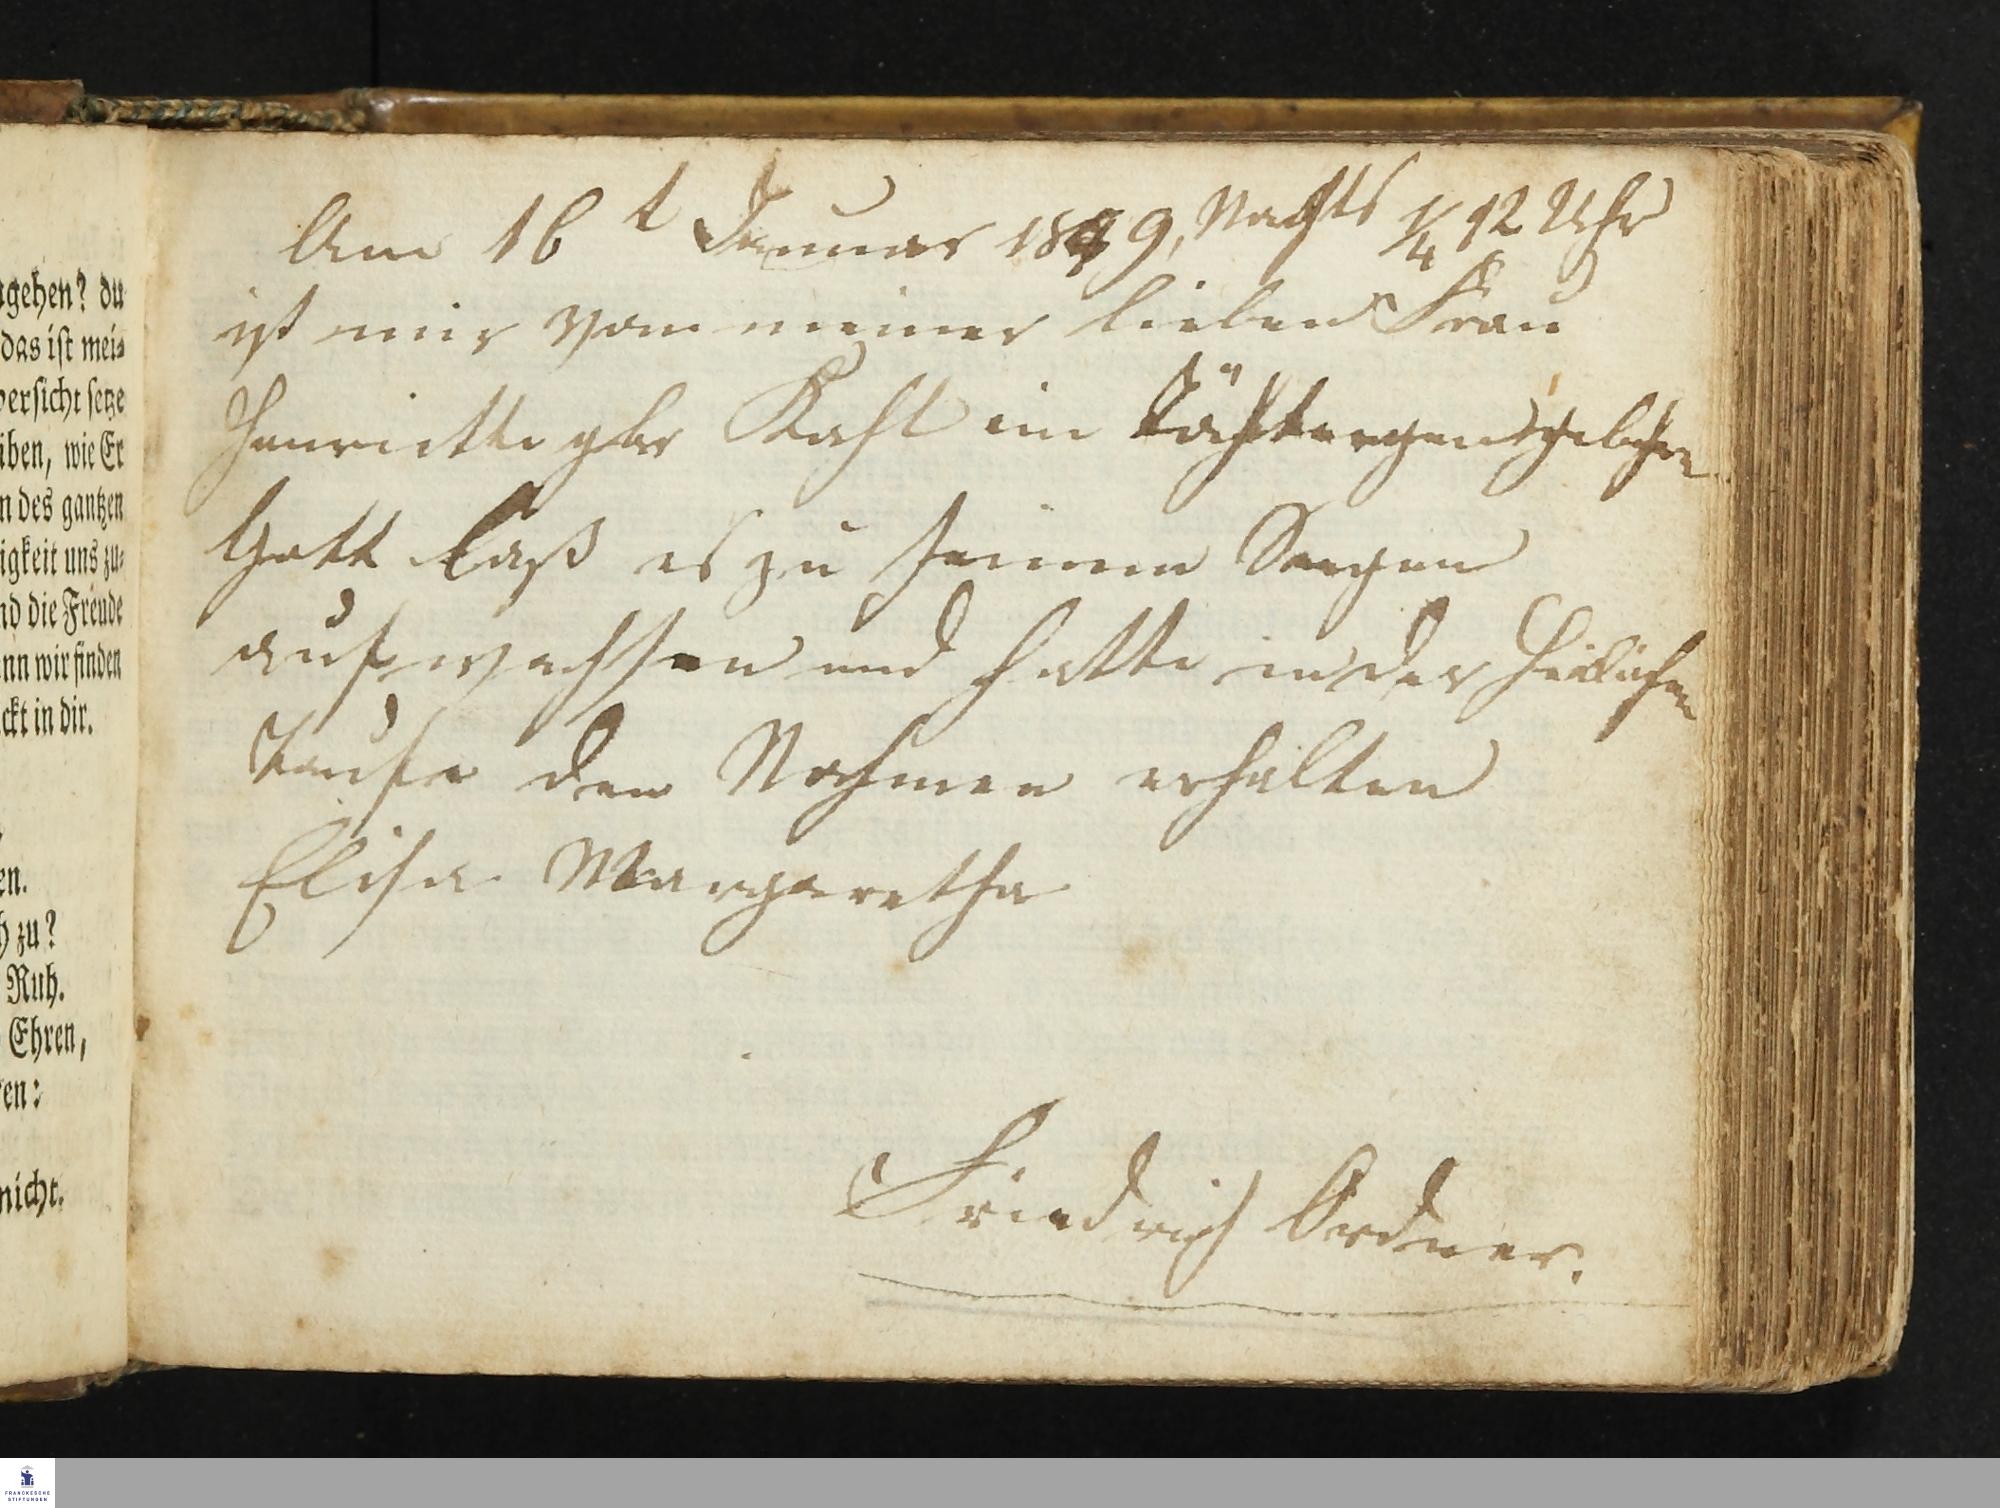 ngehen? du
das ist mei⸗
versicht setze
iben, wie Er
n des gantzen
igkeit uns zu⸗
nd die Freude
nn wir finden
ckt in dir.
en.
h zu?
Ruh.
Ehren,
en:
nicht.
Am 16t Januar 1849, Nachts 1/4 12 Uhr
ist mir von meiner lieben Frau
Henriette gbr Kast ein Töchtergen gebohren
Gott laß es zu seinem Seegen
aufwachsen und hatte in der Heilichen
Taufe den Nahmen erhalten
Elisa Margaretha
Friedrich Ordner.
FRANCKESCHE
STIFTUNGEN